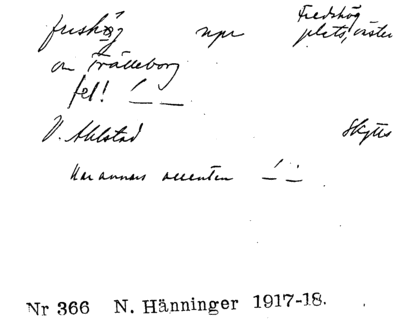 frushög npr Fredshög
plats, öster
om Trälleborg
fel! ⁄ _
V. Alstad Skytts
Har annars accenten
Nr 366 N. Hänninger 1917-18.